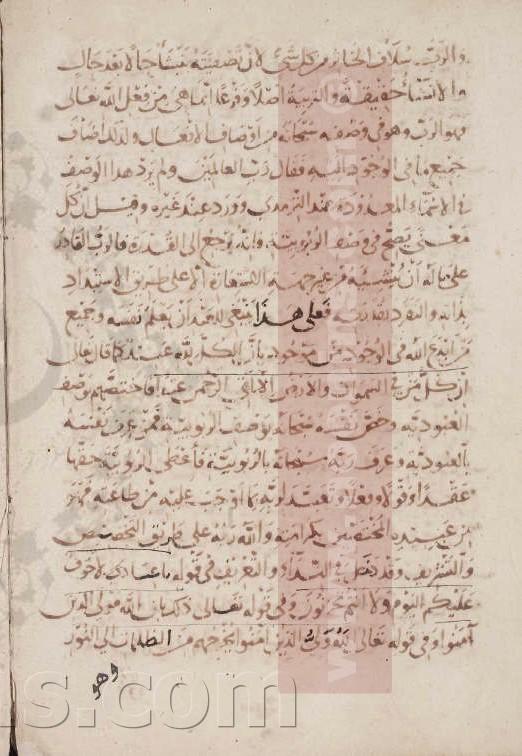 والرب سلاف الخاثر من كل شيء لأن تصفيته تنشأ حالا بعد حال
والانشاء حقيقة والتربية أصلا وفرعا انما هي من فعل الله تعالى
فهو الرب وهو في وصفه سبحانه من أوصاف الافعال ولذلك أضاف
جميع ما في الوجود اليه فقال رب العالمين ولم يرد هذا الوصف
في الأسماء المعدودة عند الترمذي وورد عند غيره وقيل ان كل
معنى يصح في وصف الربوبية وانه يرجع الى القدرة فالرب القادر
على ماله أن ينشئه من غير جهة الاستعارة الا على طريق الاستبداد
بذاته والتفرد بقدرته فعلى هذا ينبغي للعبد أن يعلم نفسه وجميع
من أبدع الله في الوجود من موجود بأن الكل لله عبيد كما قال تعالى
ان كل من في السموات والارض الا آتي الرحمن عبدا فاختصهم بوصف
العبودية وخص نفسه سبحانه بوصف الربوبية فمن عرف نفسه
بالعبودية وعرف ربه سبحانه بالربوبية فأعطى الربوبية حقها
عقدا وقولا وفعلا وتعبد لربه بما أوجب عليه من طاعته فهو
من عبيده المختصين بكرامته والله ربه على طريق التخصيص
والتشريف وقد في النداء والتعريف في قوله يا عبادي لا خوف
عليكم اليوم ولا أنتم تحزنون وفي قوله تعالى ذلك بأن الله مولى الذين
آمنوا وفي قوله تعالى الله ولي الذين آمنوا يخرجهم من الظلمات الى النور
وهو